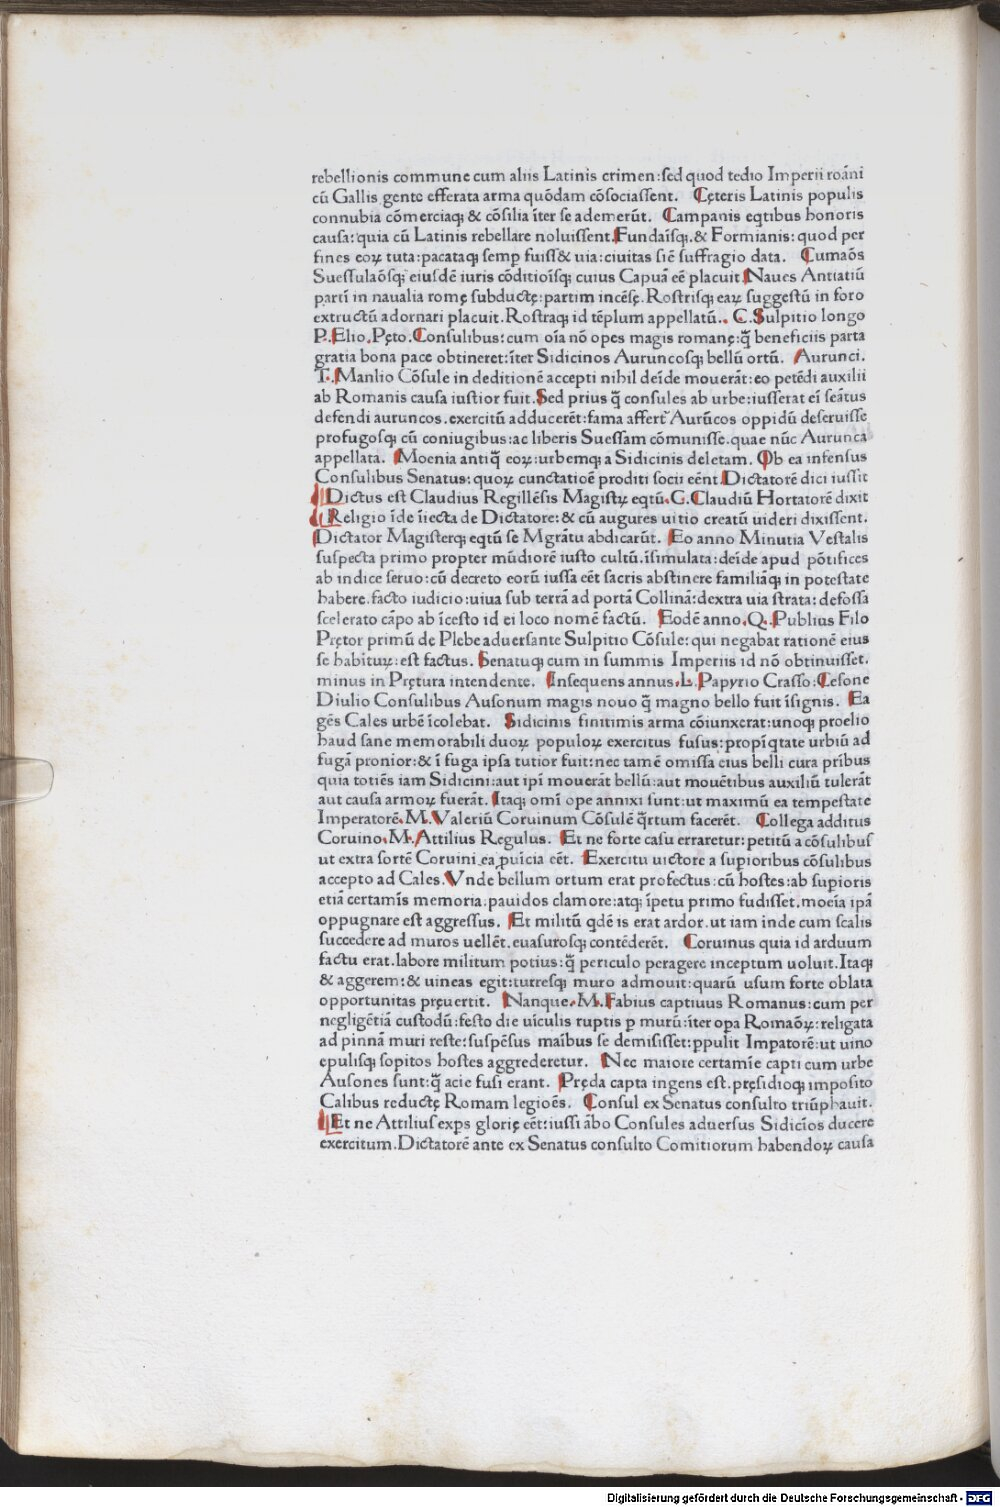 rebellionis commune cum aliis Latinis crimen:sed quod tedio Imperii roãni
cũ Gallis gente efferata arma quõdam cõsociassent. Cęteris Latinis populis
connubia cõmerciaqꝫ & cõsilia ĩter se ademerũt. Campanis eqtibus honoris
causa:quia cũ Latinis rebellare noluissent.Fundaĩsqꝫ.& Formianis:quod per
fines eoꝝ tuta:pacataqꝫ semp fuiss& uia:ciuitas siẽ suffragio data. Cumaõs
Suessulaõsqꝫ eiusdẽ iuris cõditioĩsqꝫ cuius Capuã eẽ placuit.Naues Antiatiũ
partĩ in naualia romę subductę:partim incẽsę.Rostrisqꝫ eaꝝ suggestũ in foro
extructũ adornari placuit.Rostraqꝫ id tẽplum appellatũ.. C.Sulpitio longo
P.Elio.Pęto.Consulibus:cum oĩa nõ opes magis romanę:q̃ beneficiis parta
gratia bona pace obtineret:ĩter Sidicinos Auruncosqꝫ bellũ ortũ. Aurunci.
T.Manlio Cõsule in deditionẽ accepti nihil deĩde mouerãt:eo petẽdi auxilii
ab Romanis causa iustior fuit.Sed prius q̃ consules ab urbe:iusserat eĩ seãtus
defendi auruncos.exercitũ adducerẽt:fama affert̃ Aurũcos oppidũ deseruisse
profugosqꝫ cũ coniugibus:ac liberis Suessam cõmunisse.quae nũc Aurunca
appellata. Moenia antiq̃ eoꝝ:urbemqꝫ a Sidicinis deletam. Ob ea infensus
Consulibus Senatus:quoꝝ cunctatioẽ proditi socii eẽnt.Dictatorẽ dici iussit
Dictus est Claudius Regillẽsis Magistꝝ eqtũ.C.Claudiũ Hortatorẽ dixit
Religio ĩde ĩiecta de Dictatore:& cũ augures uitio creatũ uideri dixissent.
Dictator Magisterqꝫ eqtũ se Mgrãtu abdicarũt. Eo anno Minutia Vestalis
suspecta primo propter mũdiorẽ iusto cultũ.ĩsimulata:deĩde apud põtifices
ab indice seruo:cũ decreto eorũ iussa eẽt sacris abstinere familiãqꝫ in potestate
habere.facto iudicio:uiua sub terrã ad portã Collinã:dextra uia strata:defossa
scelerato cãpo ab ĩcesto id ei loco nomẽ factũ. Eodẽ anno.Q.Publius Filo
Prętor primũ de Plebe aduersante Sulpitio Cõsule:qui negabat rationẽ eius
se habituꝝ:est factus. Senatuqꝫ cum in summis Imperiis id nõ obtinuisset.
minus in Prętura intendente. Insequens annus.L.Papyrio Crasso:Cesone
Diulio Consulibus Ausonum magis nouo q̃ magno bello fuit ĩsignis. Ea
gẽs Cales urbẽ ĩcolebat. Sidicinis finitimis arma cõiunxerat:unoqꝫ proelio
haud sane memorabili duoꝝ populoꝝ exercitus fusus:propĩqtate urbiũ ad
fugã pronior:& ĩ fuga ipsa tutior fuit:nec tamẽ omissa eius belli cura prĩbus
quia totiẽs iam Sidicini:aut ipĩ mouerãt bellũ:aut mouẽtibus auxiliũ tulerãt
aut causa armoꝝ fuerãt.Itaqꝫ omĩ ope annixi sunt:ut maximũ ea tempestate
Imperatorẽ.M.Valeriũ Coruinum Cõsulẽ q̃rtum facerẽt. Collega additus
Coruino.M.Attilius Regulus. Et ne forte casu erraretur:petitũ a cõsulibus
ut extra sortẽ Coruini ea puĩcia eẽt. Exercitu uictore a supioribus cõsulibus
accepto ad Cales.Vnde bellum ortum erat profectus:cũ hostes:ab supioris
etiã certamĩs memoria:pauidos clamore:atqꝫ ĩpetu primo fudisset.moeĩa ipã
oppugnare est aggressus. Et militũ qdẽ is erat ardor.ut iam inde cum scalis
succedere ad muros uellẽt.euasurosqꝫ contẽderẽt. Coruinus quia id arduum
factu erat.labore militum potius:q̃ periculo peragere inceptum uoluit.Itaqꝫ
& aggerem:& uineas egit:turresqꝫ muro admouit:quarũ usum forte oblata
opportunitas pręuertit. Nanque.M.Fabius captiuus Romanus:cum per
negligẽtiã custodũ:festo die uĩculis ruptis p murũ:ĩter opa Romaõꝝ:religata
ad pinnã muri reste:suspẽsus maĩbus se demisisset:ppulit Impatorẽ:ut uino
epulisqꝫ sopitos hostes aggrederetur. Nec maiore certamĩe capti cum urbe
Ausones sunt:q̃ acie fusi erant. Pręda capta ingens est.pręsidioqꝫ imposito
Calibus reductę Romam legioẽs. Consul ex Senatus consulto triũphauit.
Et ne Attilius exps glorię eẽt:iussi ãbo Consules aduersus Sidicĩos ducere
exercitum.Dictatorẽ ante ex Senatus consulto Comitiorum habendoꝝ causa
Digitalisierung gefördert durch die Deutsche Forschungsgemeinschaft - DFG